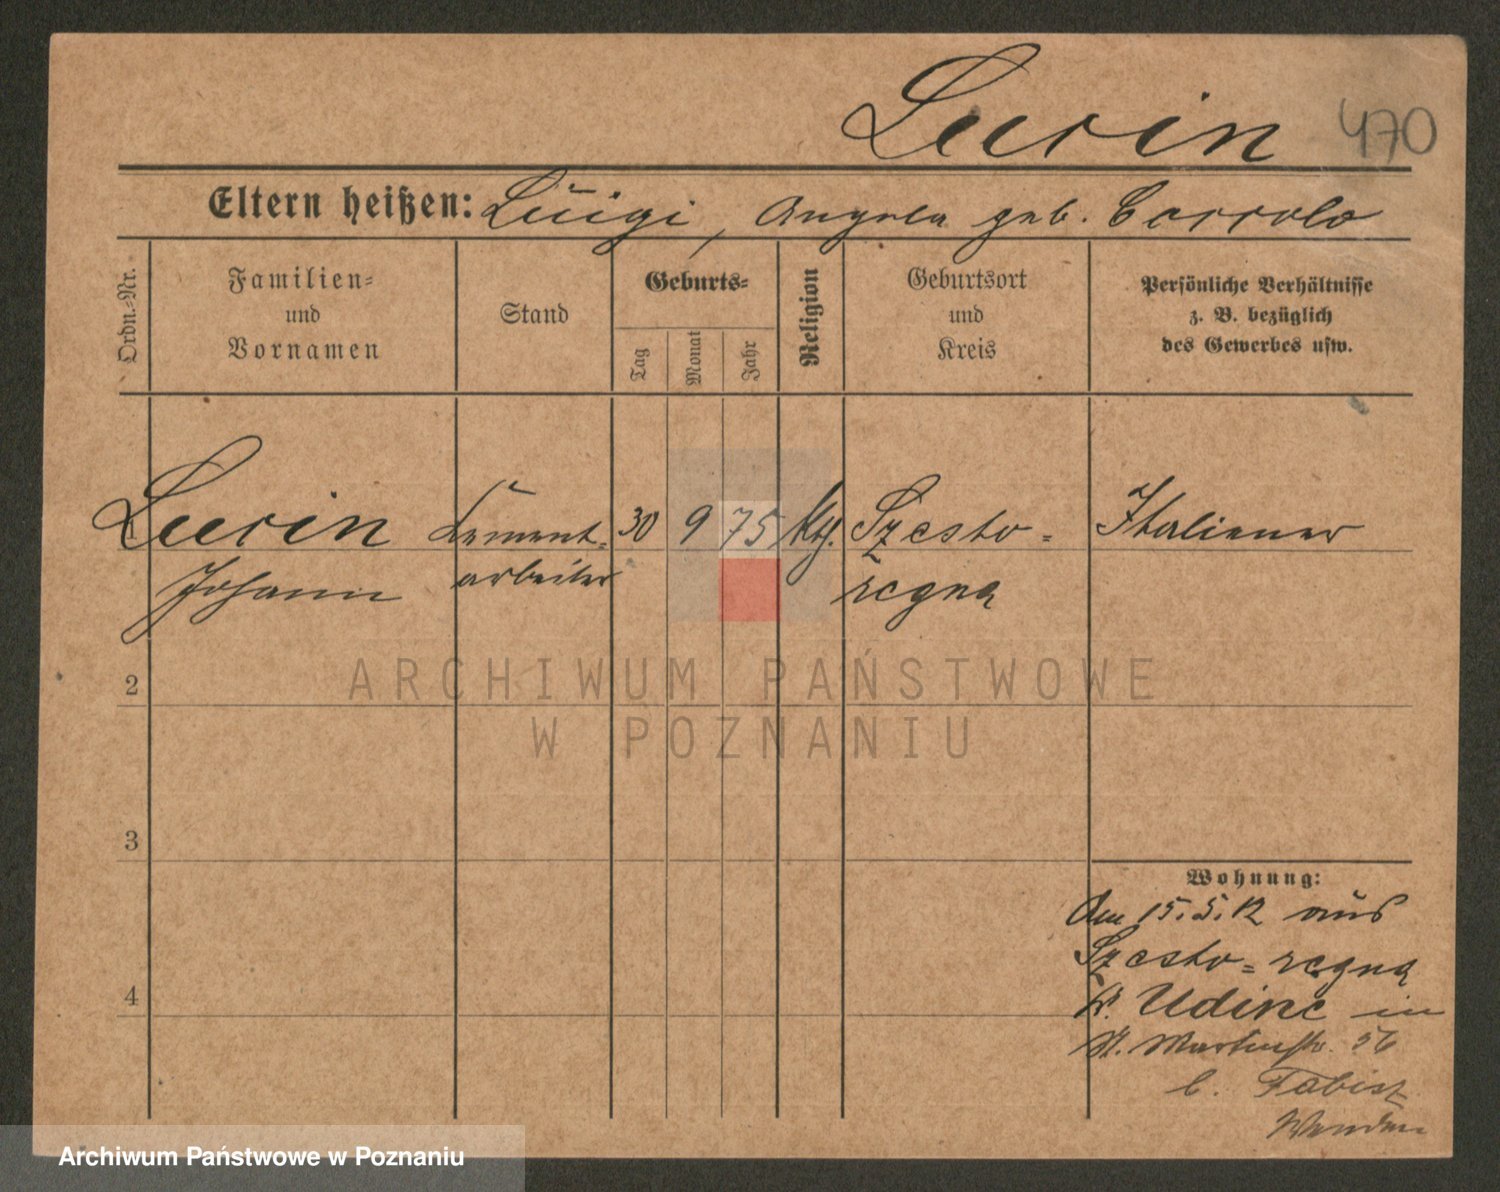 Lurin 470
Eltern heißen: Luigi, Angela geb. Corrolo
Ordn.-Nr.
Familien-
und
Vornamen
Stand
Geburts-
Tag
Monat
Jahr
Religion
Geburtsort
und
Kreis
Persönliche Verhältnisse
z. B. bezüglich
des Gewerbes usw.
Lurin Cement- 30 9 75 kth. Szesto- Italiener
Johann arbeiter regna
ARCHIWUM PAŃSTWOWE
W POZNANIU
2
3
4
Wohnung:
Am 15.5.12 aus
Szesto-regna
Kr. Udine in
St. Martinstr. 56
b. Fabisz
Archiwum Państwowe w Poznaniu